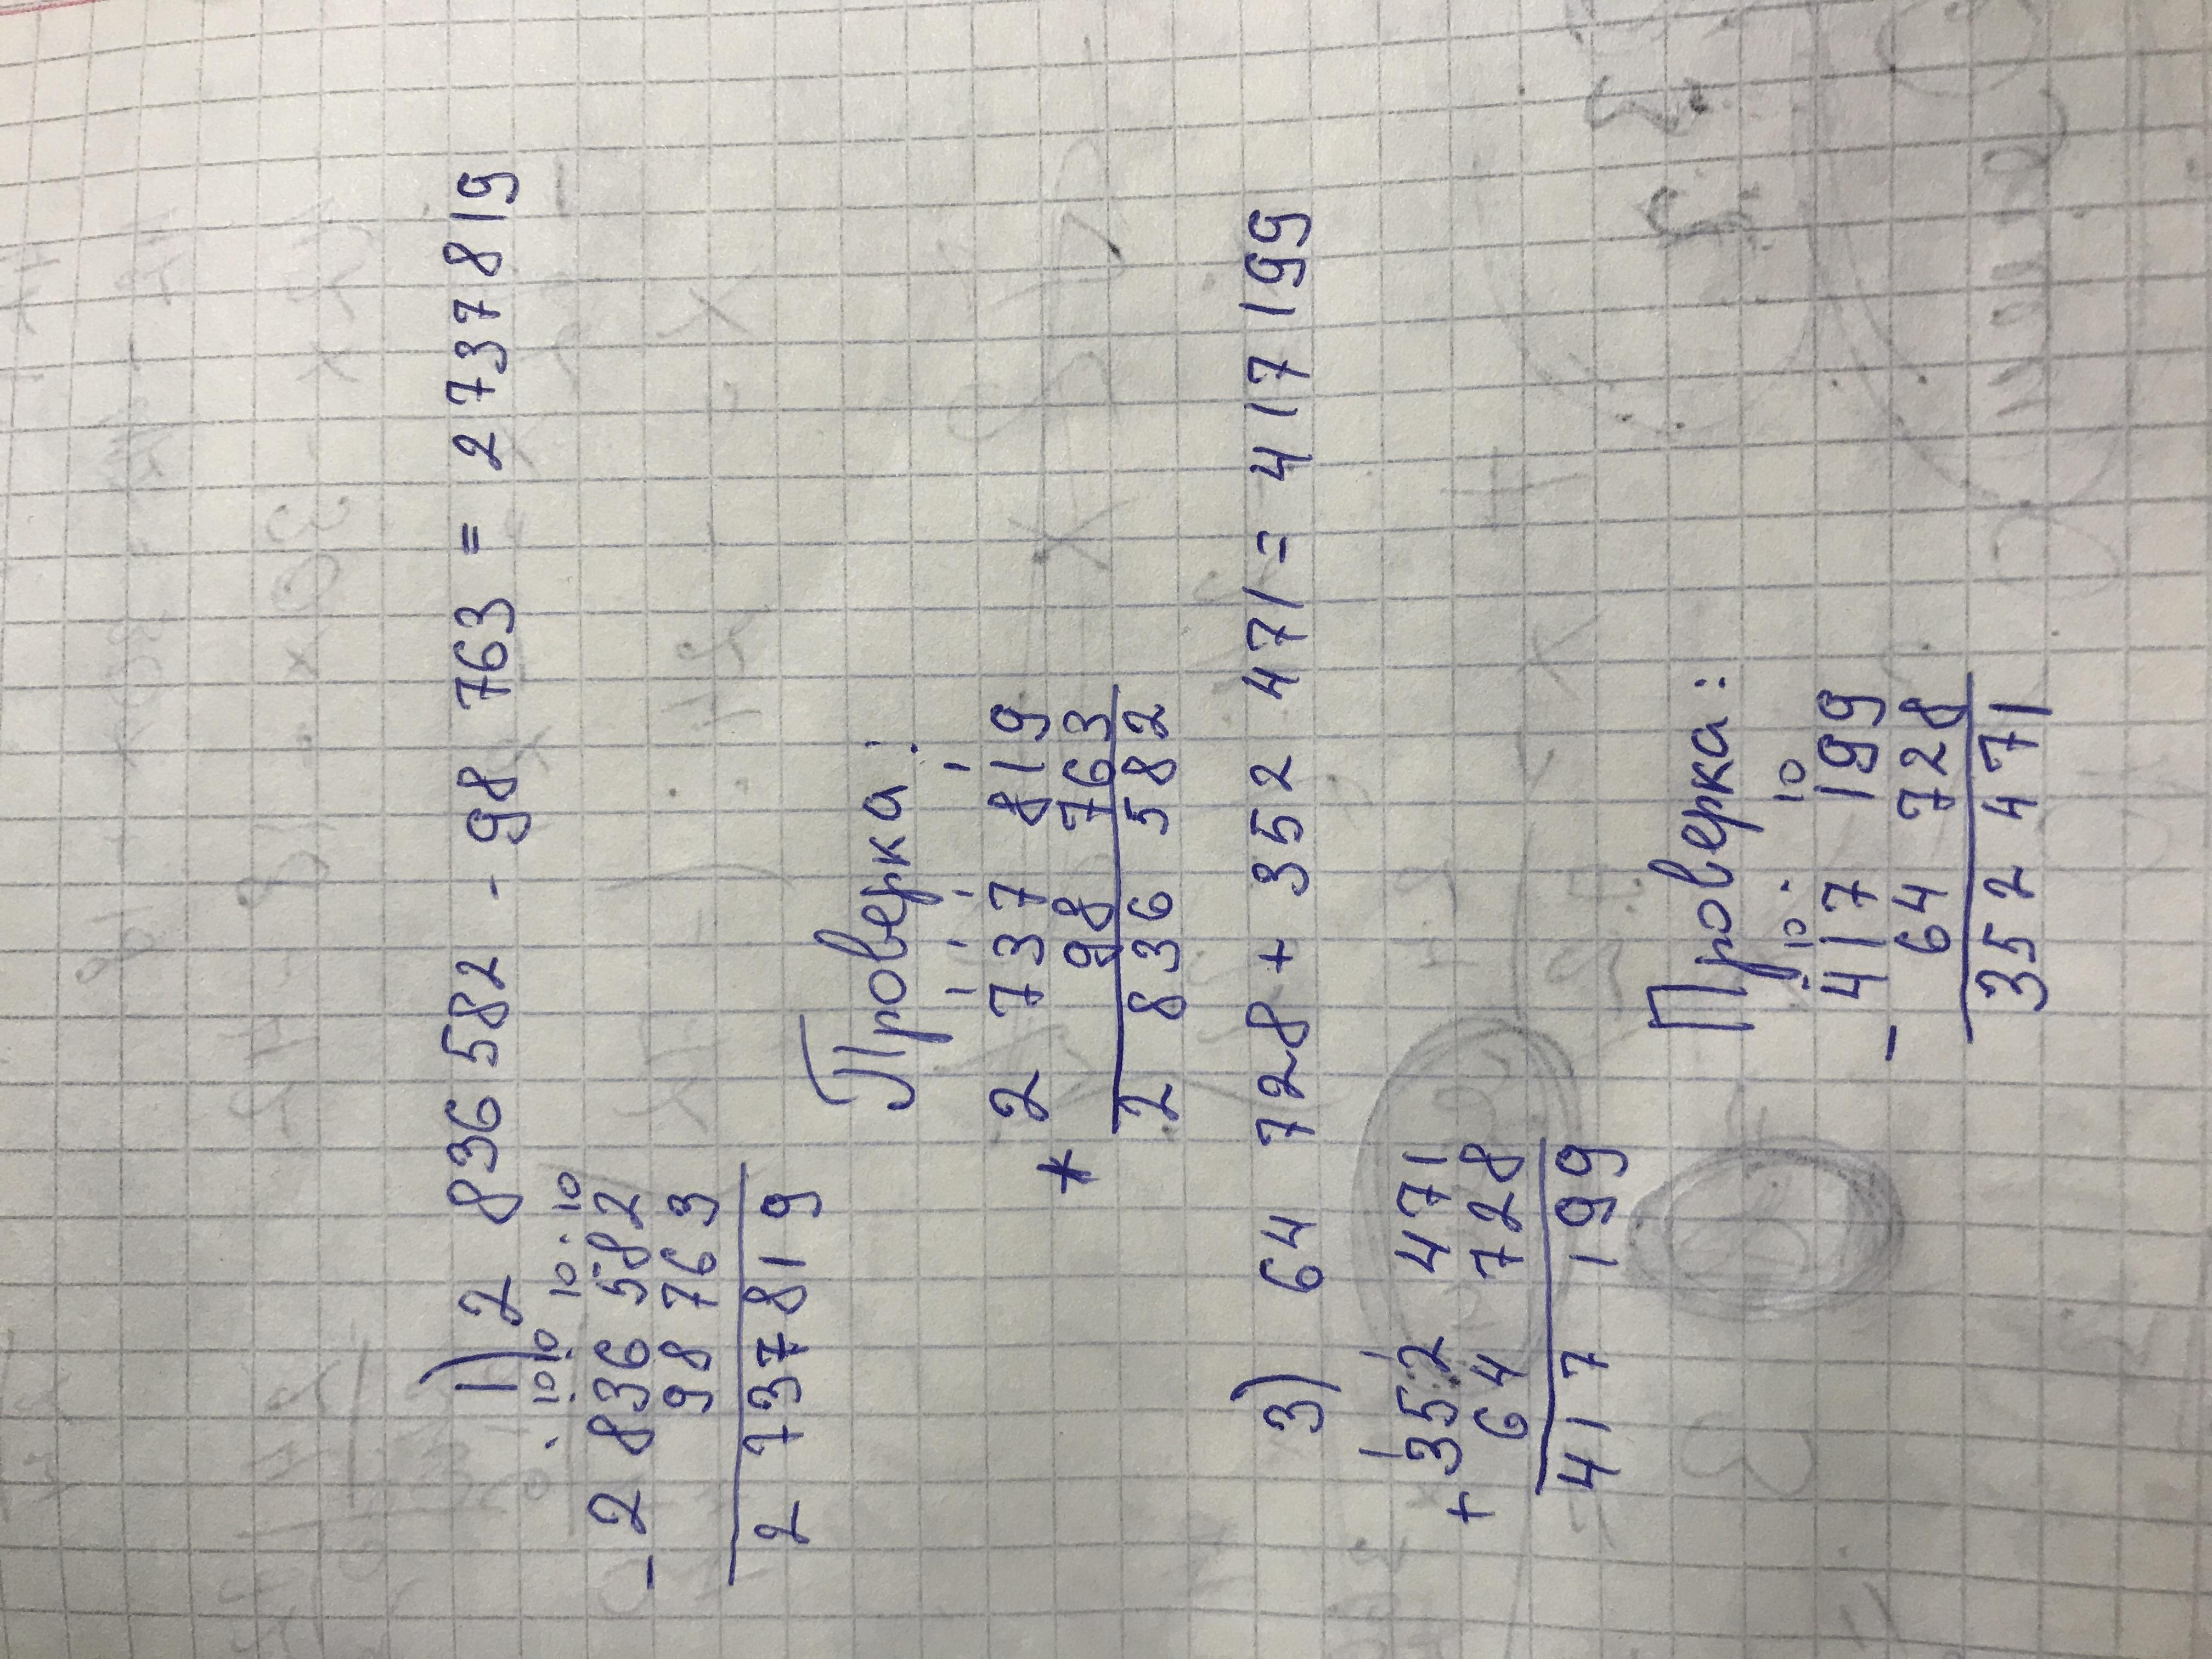 1) 2 836 582 - 98 763 = 2 737 819
. 10 10 10 . 10
- 2 836 582
98 763
2 737 819
Проверка:
2 737 819
+ 98 763
2 836 582
3) 64 728 + 352 471 = 417 199
1 1
+ 352 471
64 728
417 199
Проверка:
. 10 . 10
- 417 199
64 728
352 471